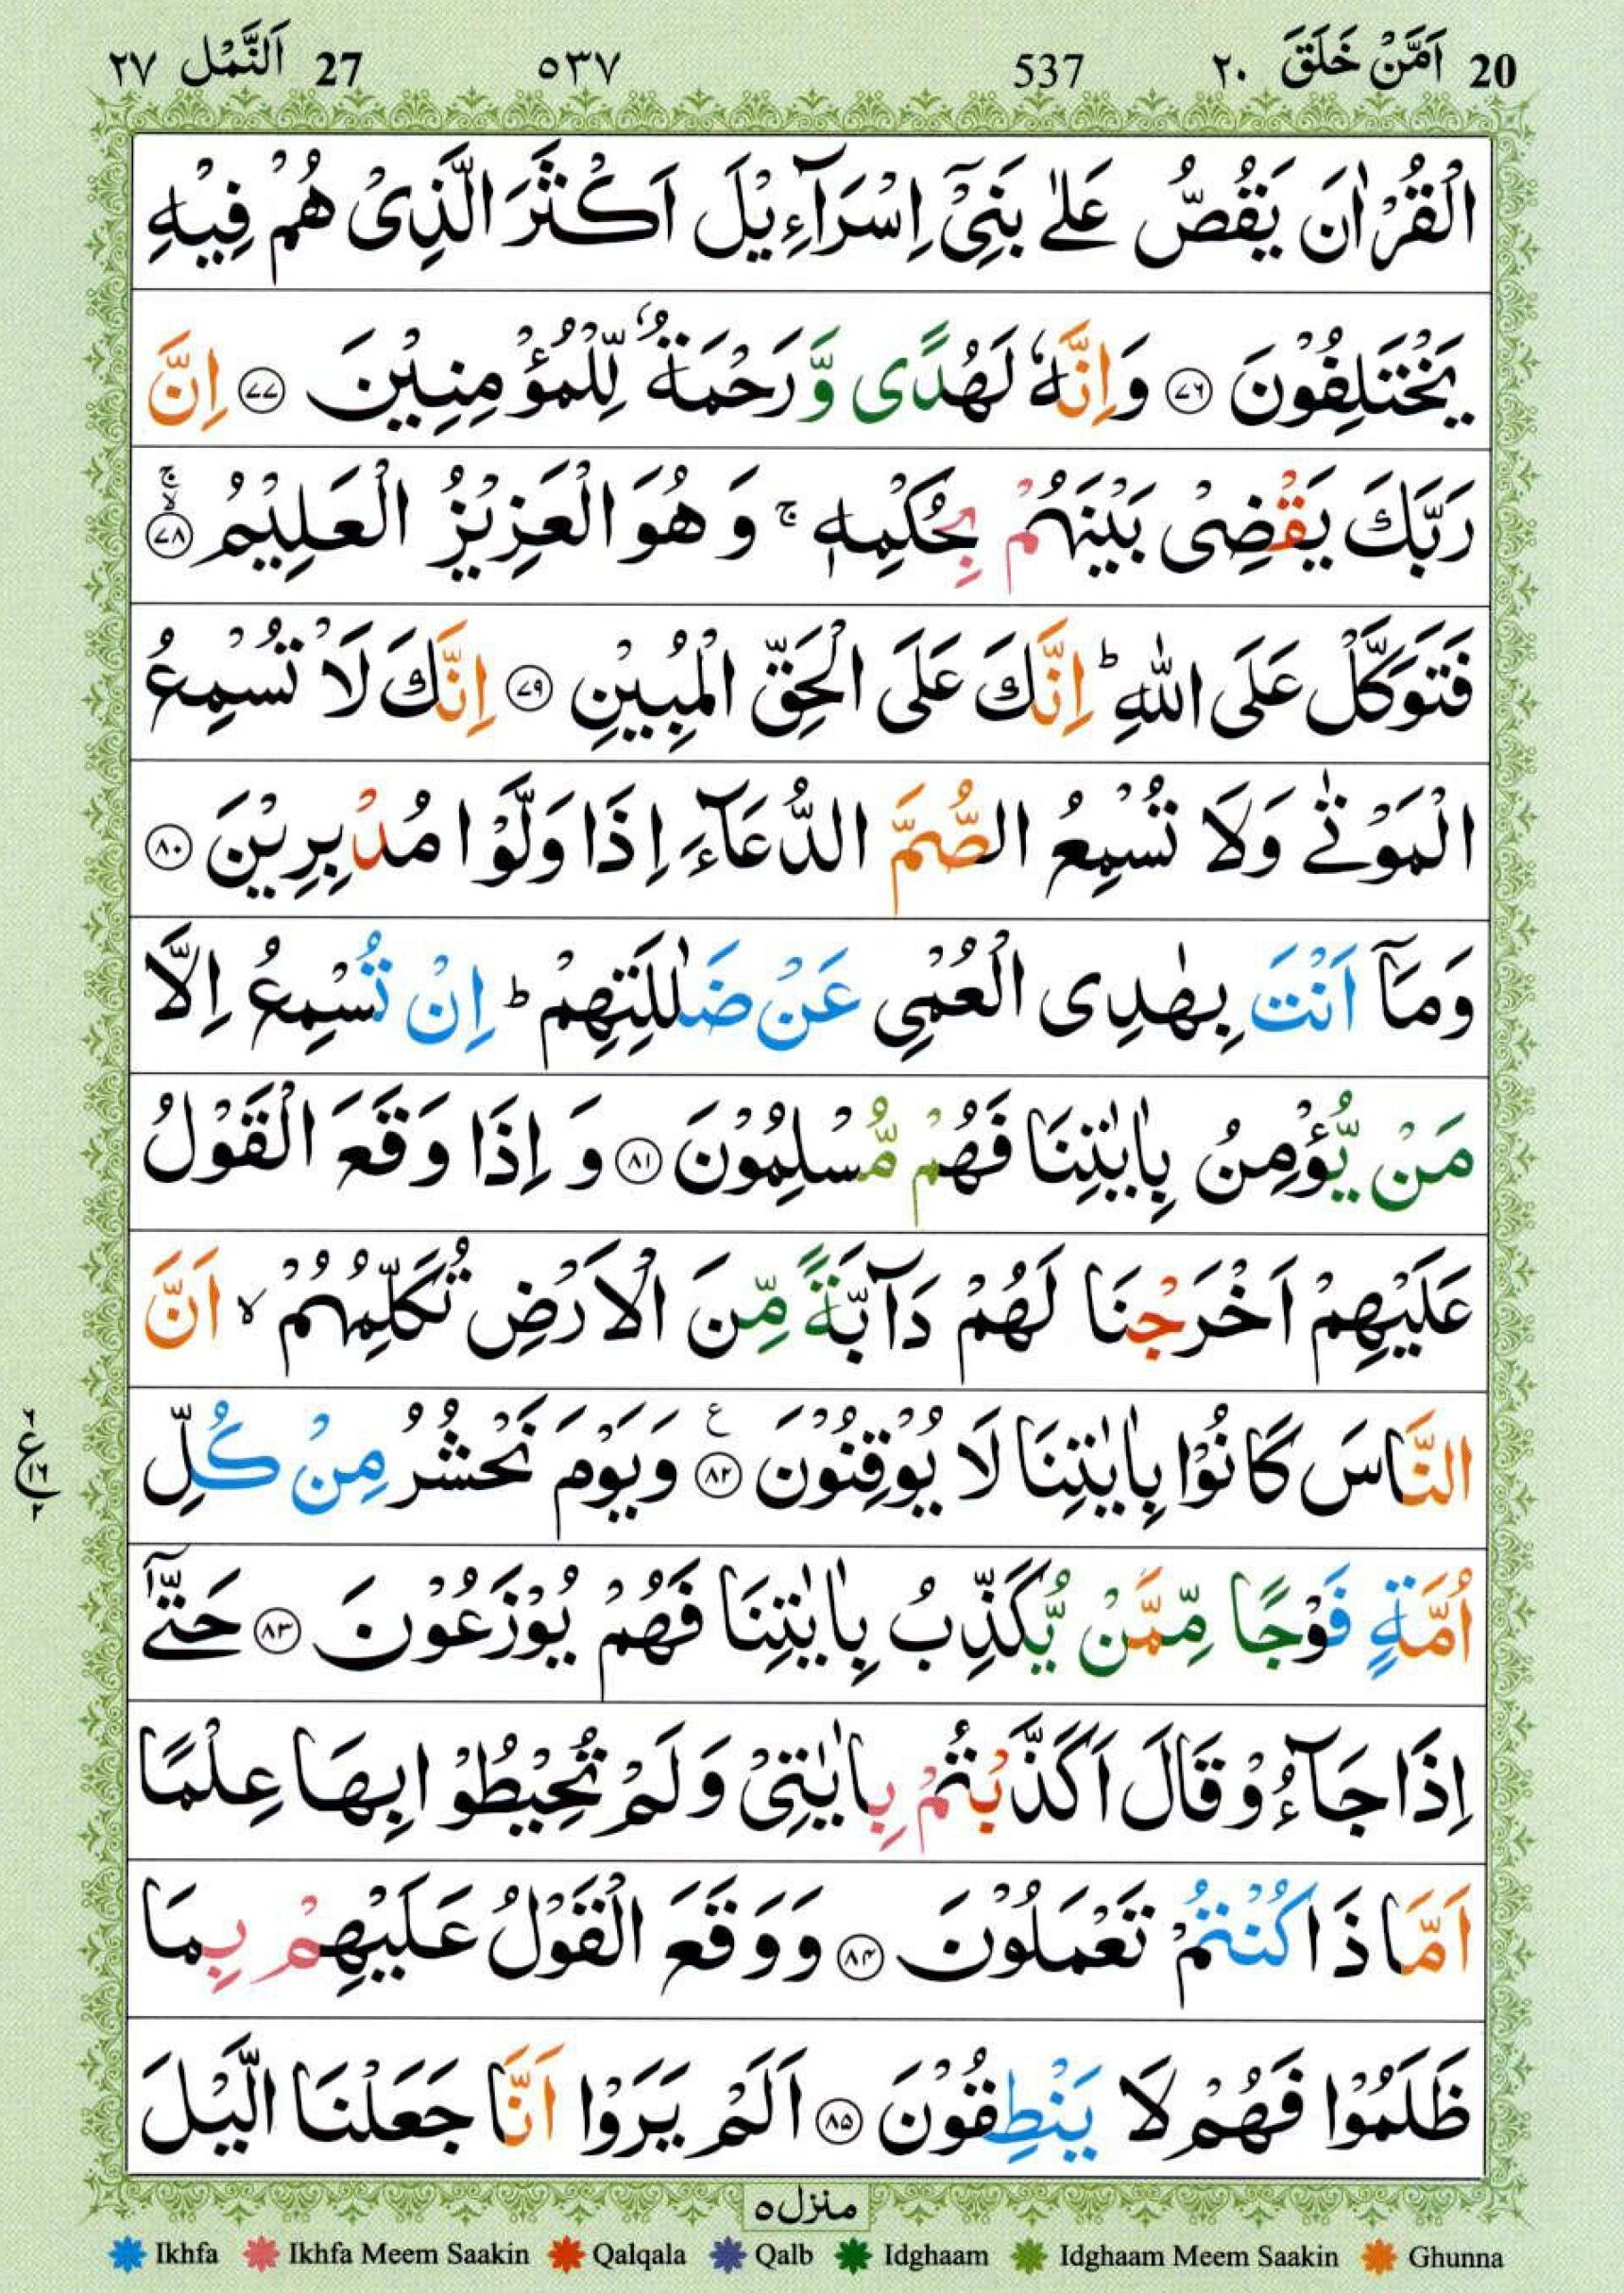 20 اَمَّنْ خَلَقَ ٢٠ 537 ٥٣٧ 27 اَلنَّمْل ٢٧
الْقُرْاٰنَ يَقُصُّ عَلٰى بَنِىْٓ اِسْرَآءِيْلَ اَكْثَرَ الَّذِىْ هُمْ فِيْهِ
يَخْتَلِفُوْنَ ﴿٧٦﴾ وَاِنَّهٗ لَهُدًى وَّرَحْمَةٌ لِّلْمُؤْمِنِيْنَ ﴿٧٧﴾ اِنَّ
رَبَّكَ يَقْضِىْ بَيْنَهُمْ بِحُكْمِهٖ ۚ وَ هُوَ الْعَزِيْزُ الْعَلِيْمُ ﴿٧٨﴾ ۙۚ
فَتَوَكَّلْ عَلَى اللّٰهِ ؕ اِنَّكَ عَلَى الْحَقِّ الْمُبِيْنِ ﴿٧٩﴾ اِنَّكَ لَا تُسْمِعُ
الْمَوْتٰى وَلَا تُسْمِعُ الصُّمَّ الدُّعَآءَ اِذَا وَلَّوْا مُدْبِرِيْنَ ﴿٨٠﴾
وَمَآ اَنْتَ بِهٰدِى الْعُمْىِ عَنْ ضَلٰلَتِهِمْ ؕ اِنْ تُسْمِعُ اِلَّا
مَنْ يُّؤْمِنُ بِاٰيٰتِنَا فَهُمْ مُّسْلِمُوْنَ ﴿٨١﴾ وَ اِذَا وَقَعَ الْقَوْلُ
عَلَيْهِمْ اَخْرَجْنَا لَهُمْ دَآبَّةً مِّنَ الْاَرْضِ تُكَلِّمُهُمْ ۙ اَنَّ
النَّاسَ كَانُوْا بِاٰيٰتِنَا لَا يُوْقِنُوْنَ ﴿٨٢﴾ ع وَيَوْمَ نَحْشُرُ مِنْ كُلِّ
٦ ع ١٦ ٢
اُمَّةٍ فَوْجًا مِّمَّنْ يُّكَذِّبُ بِاٰيٰتِنَا فَهُمْ يُوْزَعُوْنَ ﴿٨٣﴾ حَتّٰٓى
اِذَا جَآءُوْ قَالَ اَكَذَّبْتُمْ بِاٰيٰتِىْ وَلَمْ تُحِيْطُوْا بِهَا عِلْمًا
اَمَّاذَا كُنْتُمْ تَعْمَلُوْنَ ﴿٨٤﴾ وَوَقَعَ الْقَوْلُ عَلَيْهِمْ بِمَا
ظَلَمُوْا فَهُمْ لَا يَنْطِقُوْنَ ﴿٨٥﴾ اَلَمْ يَرَوْا اَنَّا جَعَلْنَا الَّيْلَ
منزل٥
Ikhfa Ikhfa Meem Saakin Qalqala Qalb Idghaam Idghaam Meem Saakin Ghunna